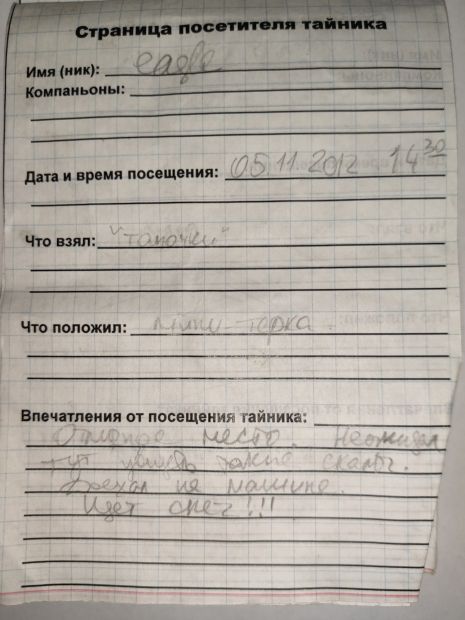 Страница посетителя тайника
Имя (ник): eagle
Компаньоны:
Дата и время посещения: 05.11.2012 14 30
Что взял: "тапочки"
Что положил: мини-терка.
Впечатления от посещения тайника:
Отличное место. Неожидал
тут увидеть такие скалы.
Доехал на машине.
Идет снег!!!